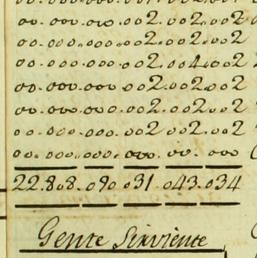 oo.ooo.oo.oo2.oo2.oo2
oo.oo.oo.oo2.oo2.oo2
oo.ooo.ooo.oo2.oo4.oo2
oo.ooo.ooo.oo2.oo2.oo2
oo.ooo.ooo.oo2.oo2.oo2
oo.ooo.ooo.oo2.oo2.oo2
oo.ooo.ooo.ooo.oo.ooo
22.8.8.o90.o31.o43.o34
Gente Sirviente